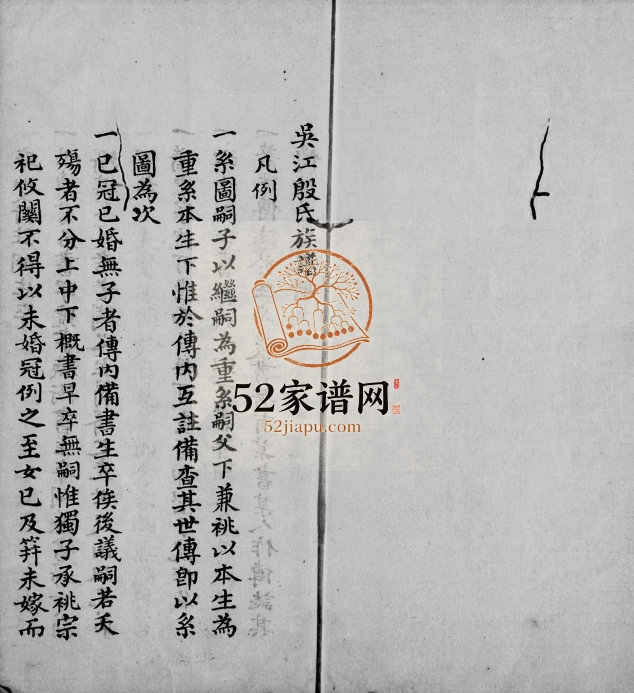 吳江殷氏族譜
凡例
一系圖嗣子以繼嗣為重系嗣父下兼祧以本生為
重系本生下惟於傳內互註備查其世傳卽以系
圖為次
一已冠已婚無子者傳內備書生卒俟後議嗣若夭
殤者不分上中下概書早卒無嗣惟獨子承祧宗
祀攸關不得以未婚冠例之至女已及笄未嫁而
52家谱网
52jiapu.com